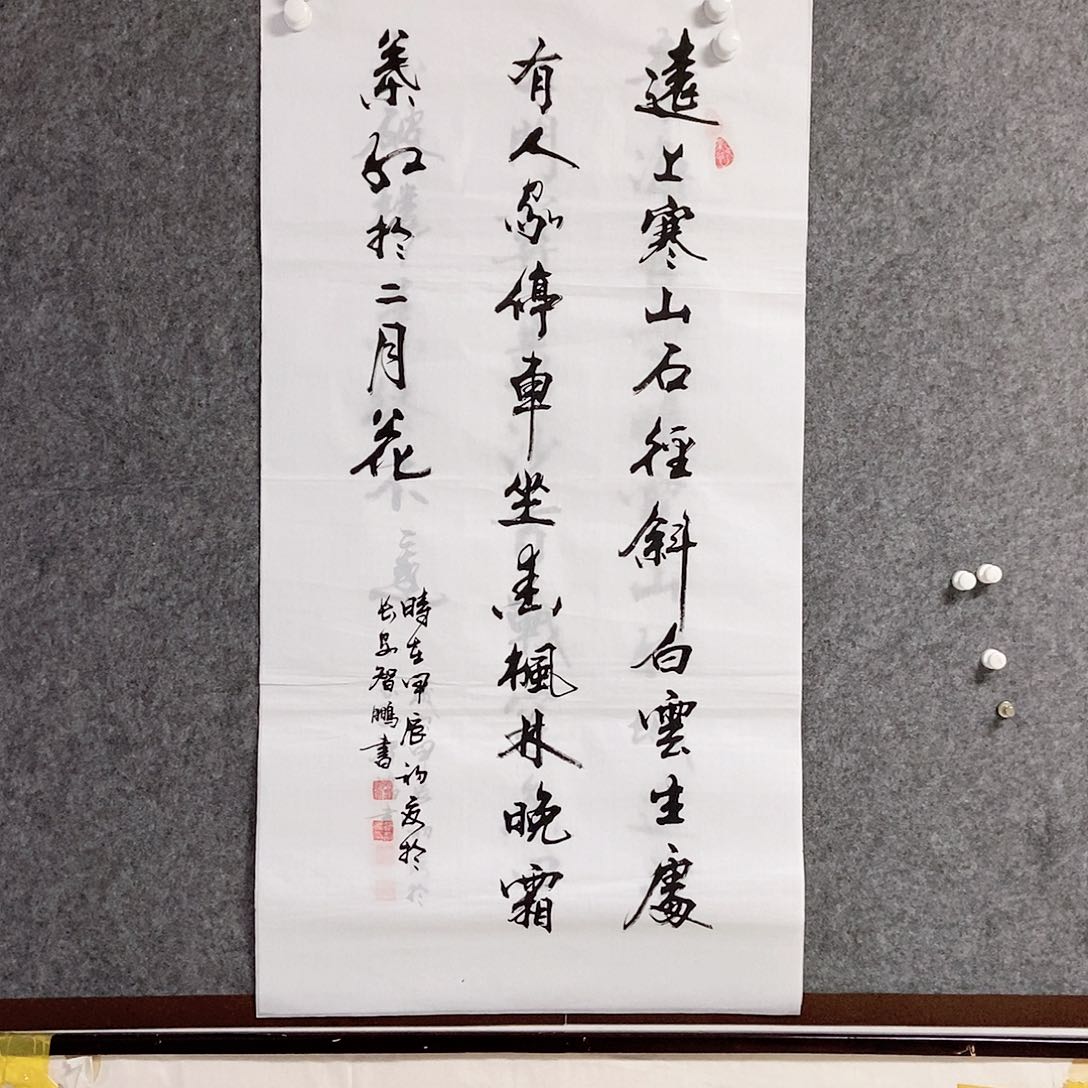 遠上寒山石徑斜白雲生處
有人家停車坐愛楓林晚霜
葉紅於二月花
時在甲辰初夏於
長安智鵬書